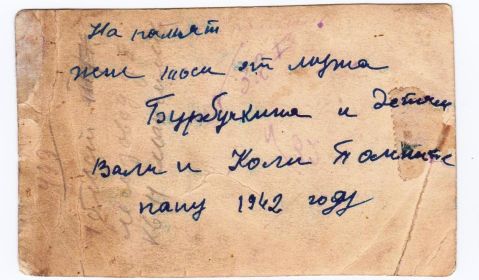 На памят
жене Тоси от мужа
Бурбучкина и детям
Вали и Коли Помните
папу 1942 году